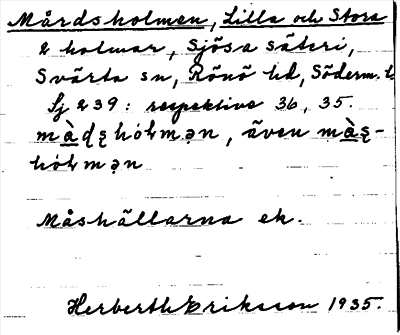 Mårdsholmen, Lilla och Stora
2 holmar, Sjösa säteri,
Svärta sn, Rönö hd, Söderm. l
Lj 239: respektive 36, 35.
mȧ̀dʂhólmən, även mȧ̀ʂ-
hólmən
Måshällarna ek.
Herberth Eriksson 1935.